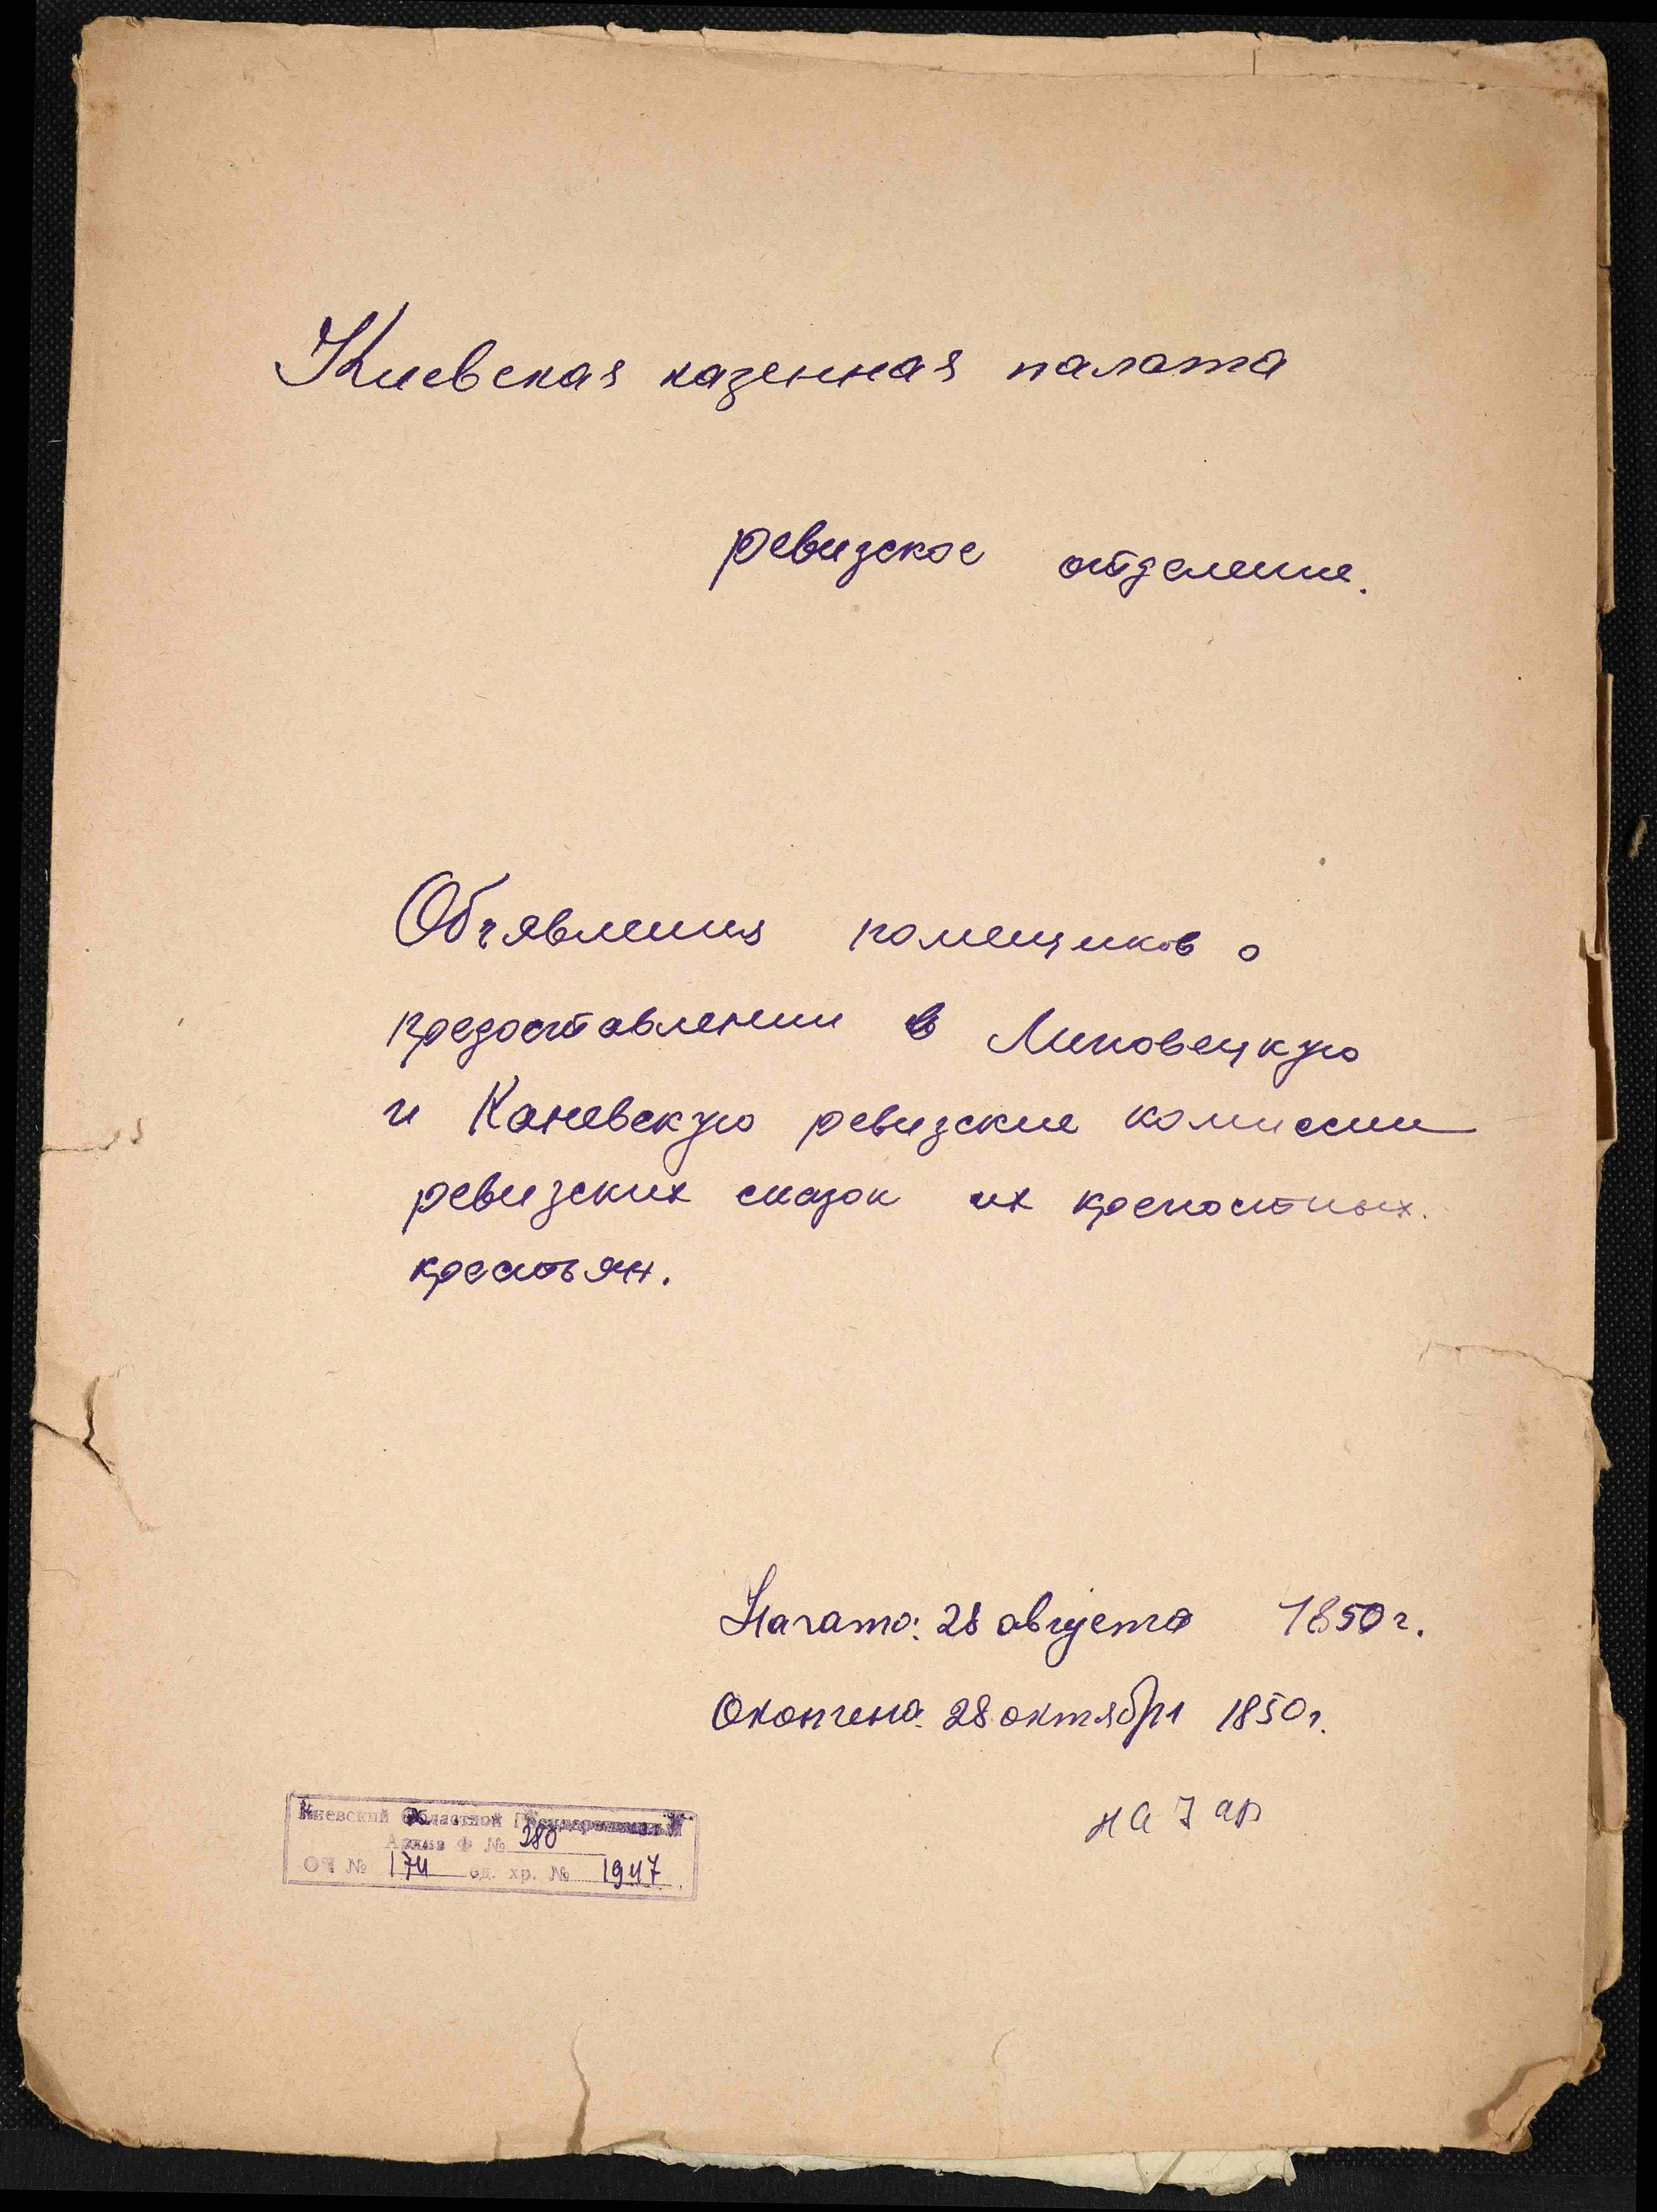 Киевская казенная палата
ревизское отделение.
Объявления помещиков о
предоставлении в Липовецкую
и Каневскую ревизские комиссии
ревизских сказок их крепостных
крестьян.
Начато: 28 августа 1850 г.
Окончено: 28 октября 1850 г.
на 7 ар
Киевский Областной Государственный
Архив Ф № 280
ОП № 174 ед. хр. № 1947